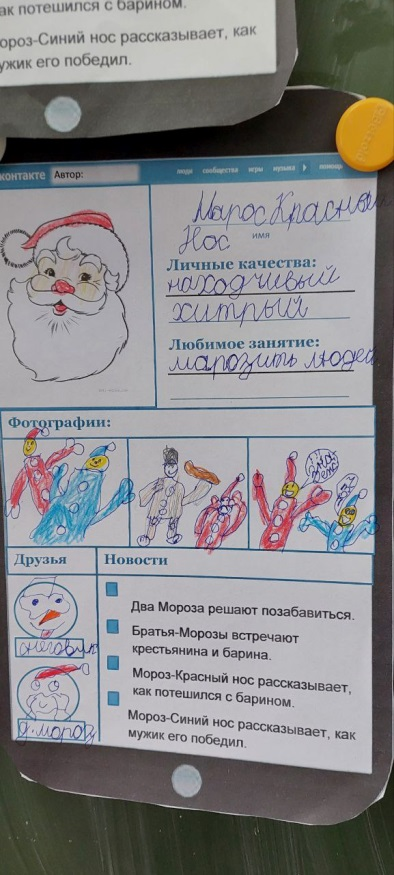 ак потешился с барином.
ороз-Синий нос рассказывает, как
ужик его победил.
контакте Автор: люди сообщества игры музыка помощь
Марос Красный
Нос имя
Личные качества:
находчивый
хитрый
Любимое занятие:
марозить людей
Фотографии:
Друзья
Новости
Два Мороза решают позабавиться.
Братья-Морозы встречают
крестьянина и барина.
Мороз-Красный нос рассказывает,
как потешился с барином.
Мороз-Синий нос рассказывает, как
мужик его победил.
снеговик
д. мороз